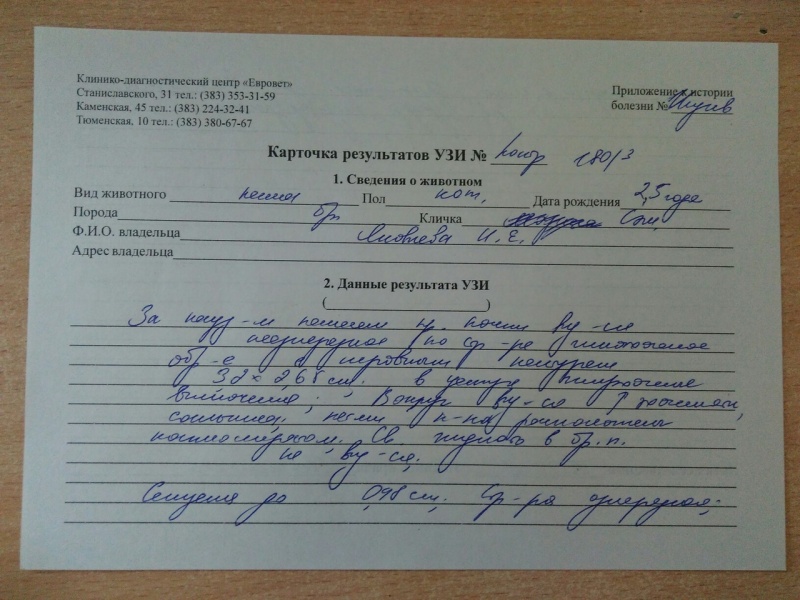 Клинико-диагностический центр «Евровет»
Станиславского, 31 тел.: (383) 353-31-59
Каменская, 45 тел.: (383) 224-32-41
Тюменская, 10 тел.: (383) 380-67-67
Приложение к истории
болезни №
Карточка результатов УЗИ № 180/3
1. Сведения о животном
Вид животного кошка Пол кот. Дата рождения 2,5 года
Порода бр. Кличка Сэм
Ф.И.О. владельца Яковлева И. Е.
Адрес владельца
2. Данные результата УЗИ
()
За полюсом пр. почки ву-ся
неоднородное по стр-ре
обр-е с неровными контурами
см. в центре
включения; Вокруг ву-ся ↑ эхогенность
сальника, петли к-ка расположены
Св. жидкость в бр. п.
не ву-ся.
Селезенка до 0,98 см. Стр-ра однородная.